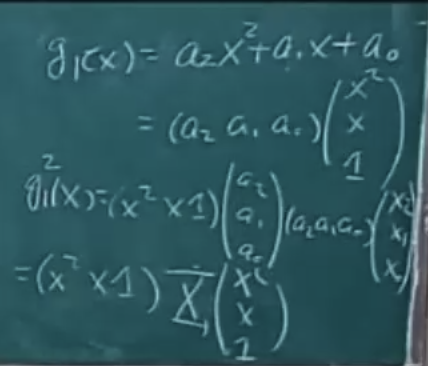 g₁(x) = a₂x² + a₁x + a₀
= (a₂ a₁ a₀) (x² x 1)
g₁²(x) = (x² x 1) (a₂ a₁ a₀) (a₂ a₁ a₀) (x² x₁ x)
= (x² x 1) X₁ (x² x 1)